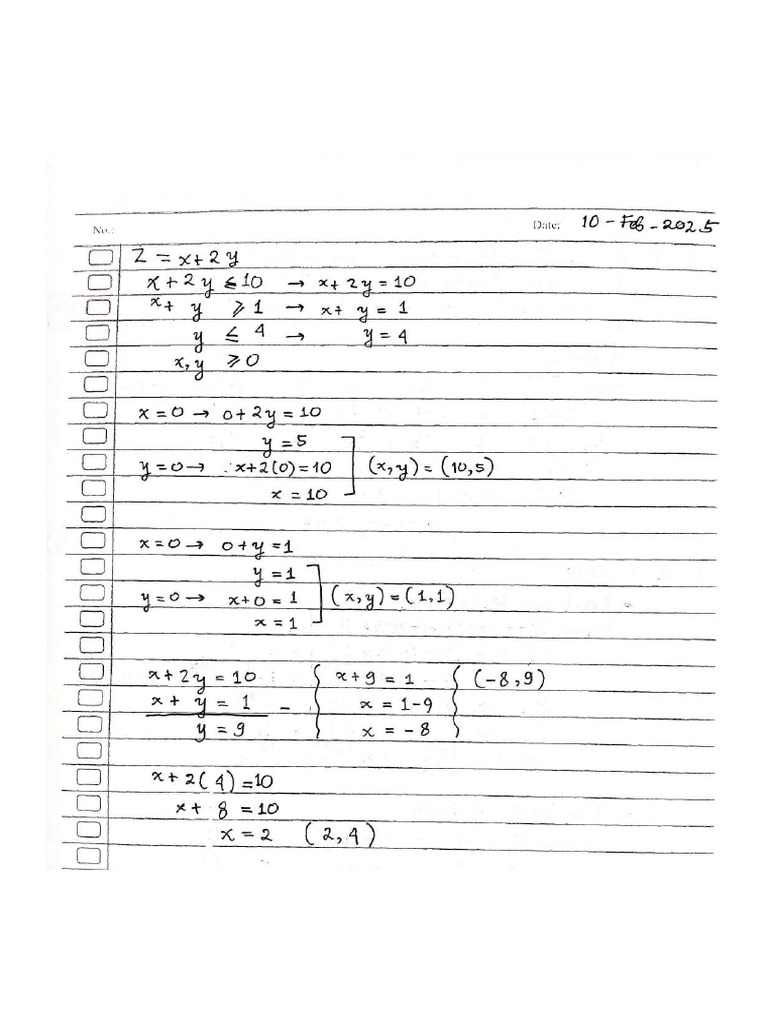 No.: Date: 10 - Feb - 2025
Z = x + 2y
x + 2y ≤ 10 → x + 2y = 10
x + y ⩾ 1 → x + y = 1
y ≤ 4 → y = 4
x, y ⩾ 0
x = 0 → 0 + 2y = 10
y = 5
y = 0 → x + 2(0) = 10 (x, y) = (10, 5)
x = 10
x = 0 → 0 + y = 1
y = 1
y = 0 → x + 0 = 1 (x, y) = (1, 1)
x = 1
x + 2y = 10 x + 9 = 1 (-8, 9)
x + y = 1 - x = 1 - 9
y = 9 x = -8
x + 2(4) = 10
x + 8 = 10
x = 2 (2, 4)